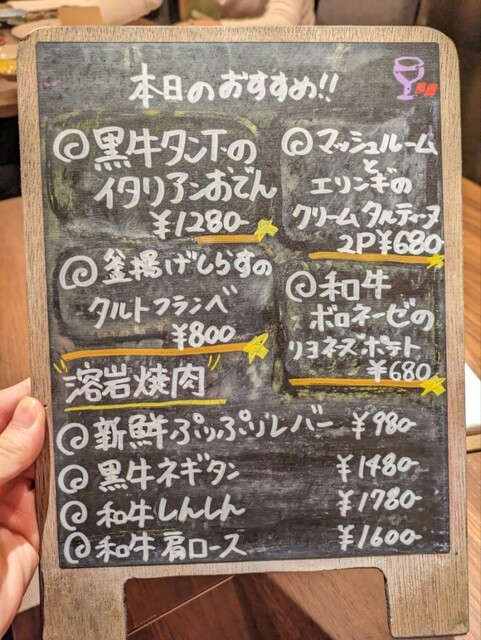 本日のおすすめ!!
黒牛タン下の
イタリアンおでん
¥1280-
マッシュルーム
と
エリンギの
クリームタルティーヌ
2P¥680
釜揚げしらすの
タルトフランベ
¥800
和牛
ボロネーゼの
リヨネズポテト
¥680
溶岩焼肉
新鮮ぷりぷりレバー ¥980-
黒牛ネギタン ¥1480-
和牛しんしん ¥1780-
和牛肩ロース ¥1600-